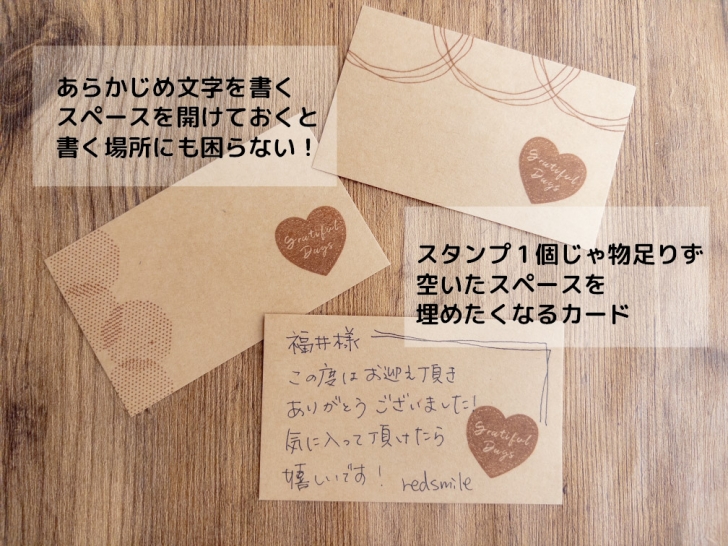 あらかじめ文字を書く
スペースを開けておくと
書く場所にも困らない！
Grateful
Days
スタンプ１個じゃ物足りず
空いたスペースを
埋めたくなるカード
Grateful
Days
福井様
この度はお迎え頂き
ありがとうございました!
気に入って頂けたら
嬉しいです! redsmile
Grateful
Days